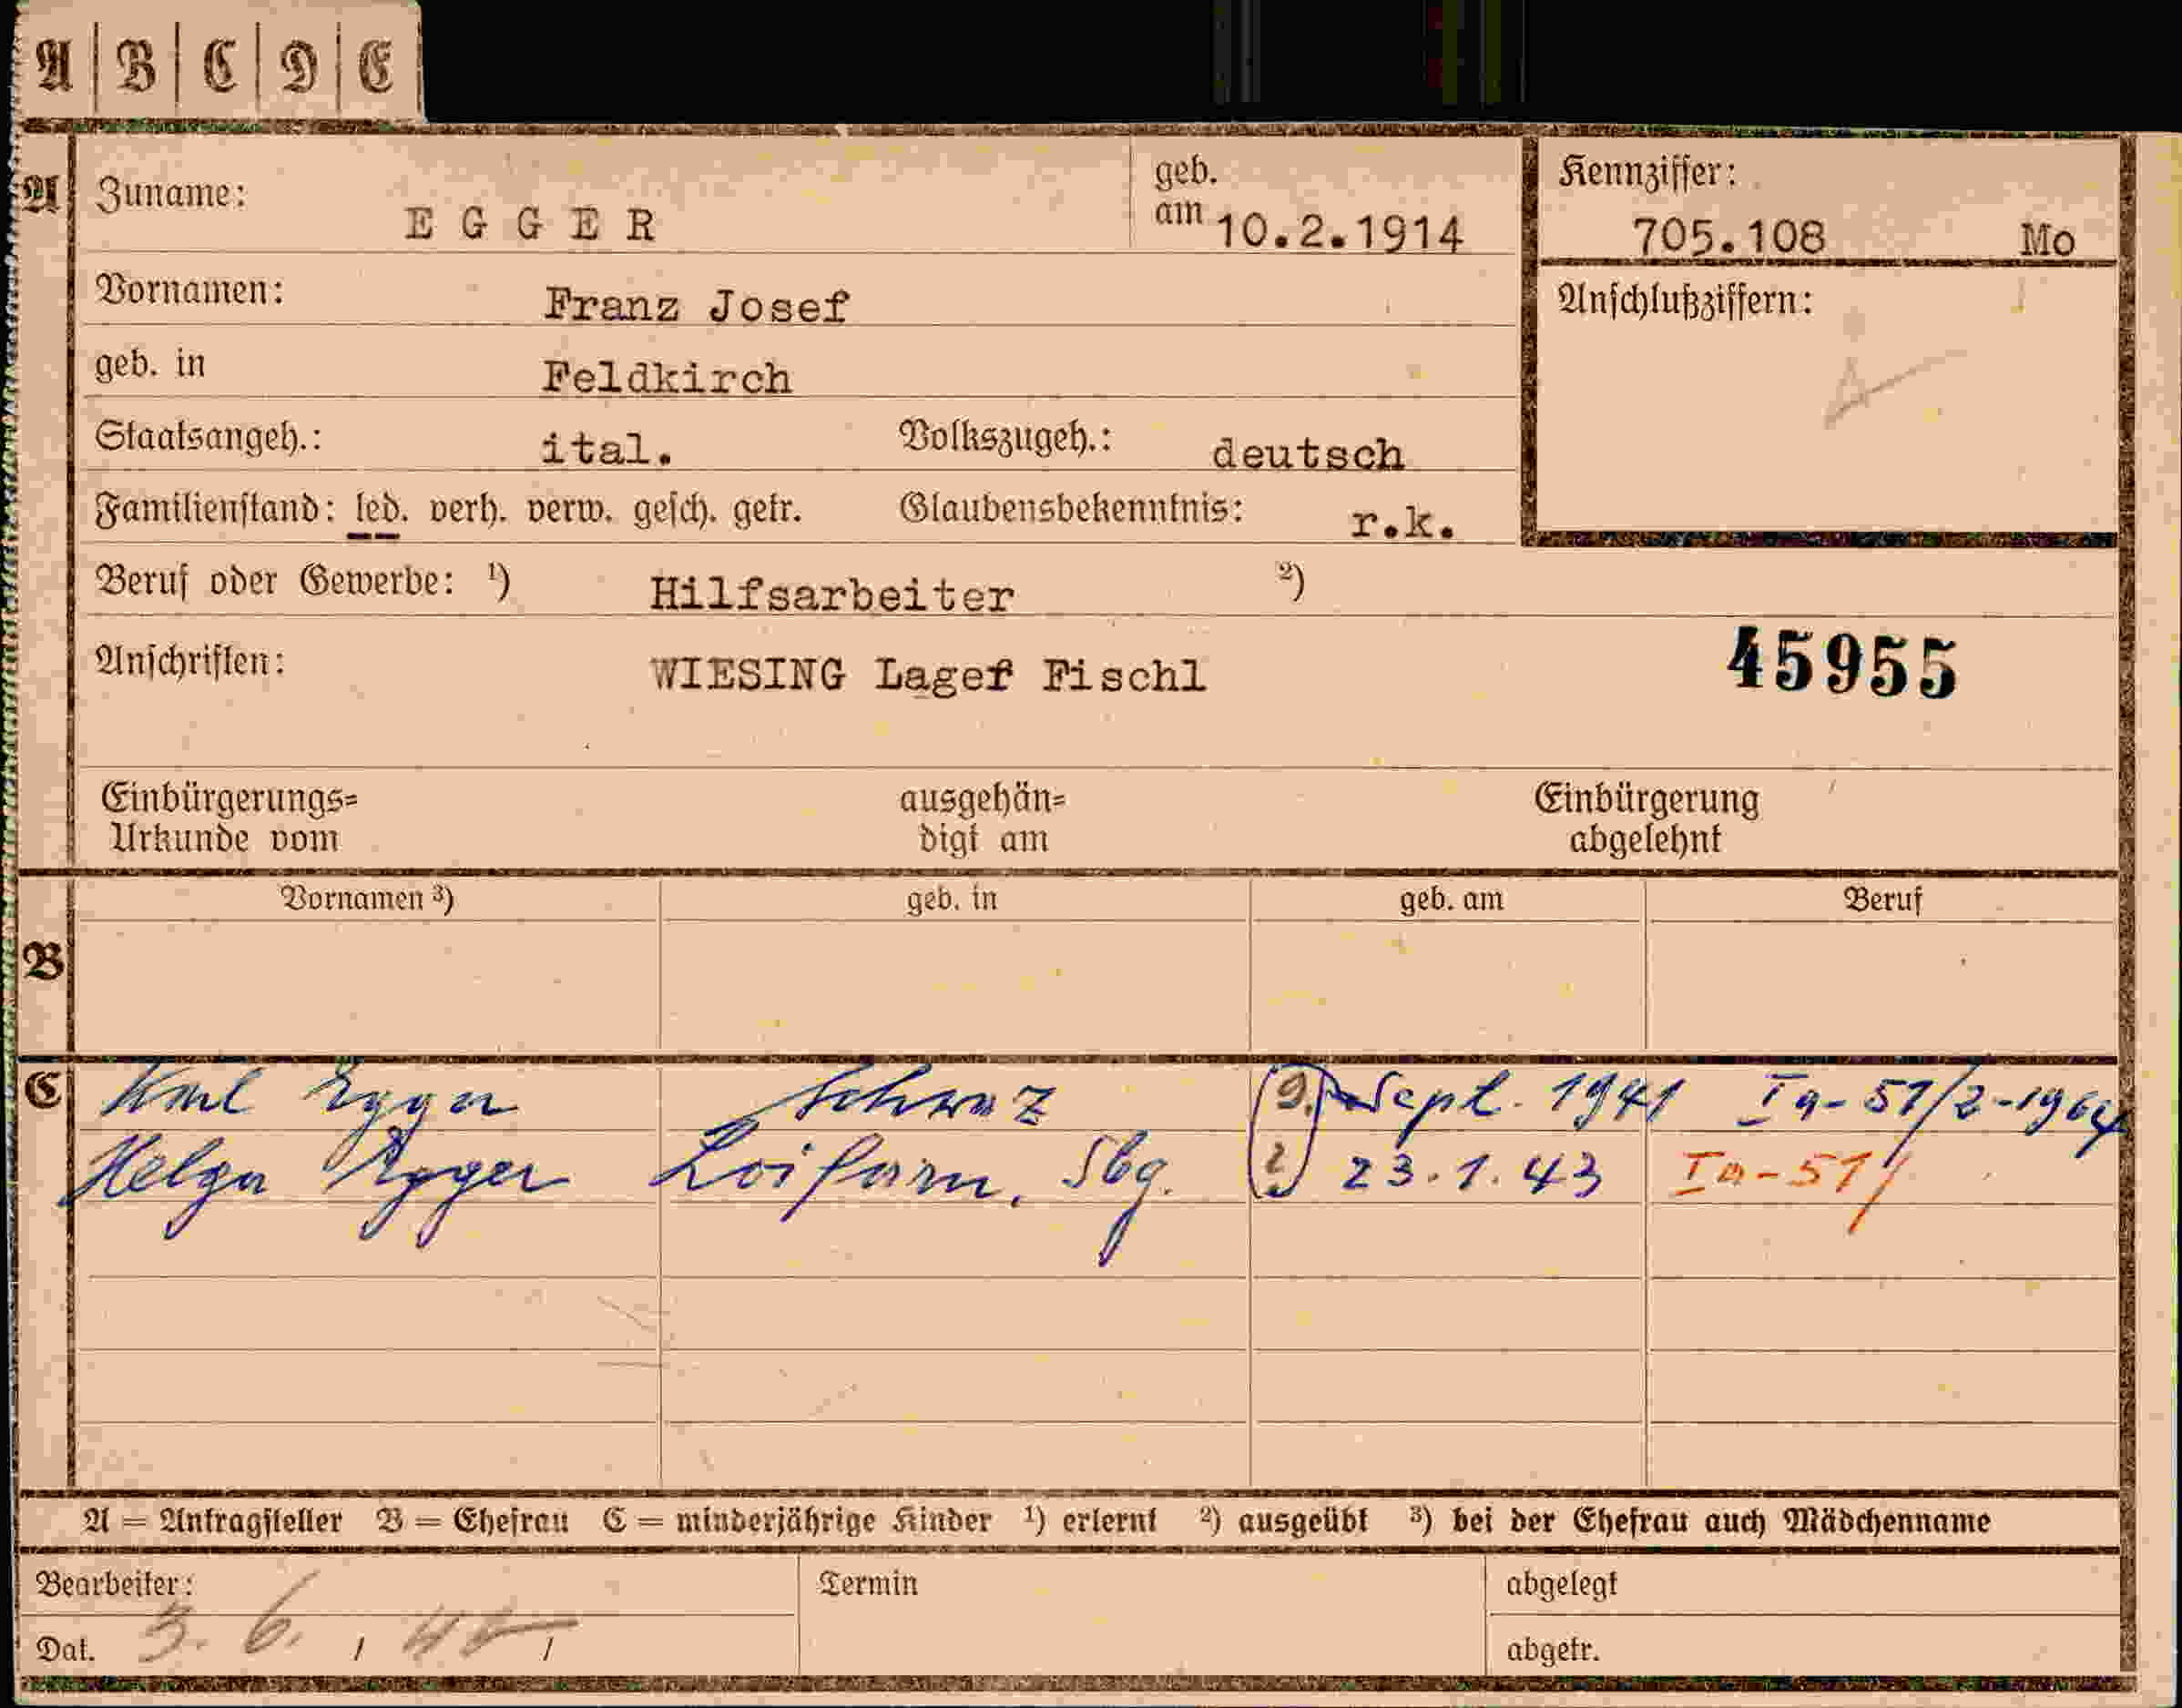 A | B | C | D | E
A Zuname: EGGER geb. am 10.2.1914 Kennziffer: 705.108 Mo
Vornamen: Franz Josef Anschlußziffern:
geb. in Feldkirch
Staatsangeh.: ital. Volkszugeh.: deutsch
Familienstand: led. verh. verw. gesch. getr. Glaubensbekenntnis: r.k.
Beruf oder Gewerbe: ¹) Hilfsarbeiter ²)
Anschriften: WIESING Lager Fischl 45955
Einbürgerungs= ausgehän= Einbürgerung
Urkunde vom digt am abgelehnt
Vornamen ³) geb. in geb. am Beruf
B
C Karl Egger Schwaz 9. Sept. 1941 Ia-51/2-1964
Helga Egger Loifarn, Sbg. 23.1.43 Ia-51/
A = Antragsteller B = Ehefrau C = minderjährige Kinder ¹) erlernt ²) ausgeübt ³) bei der Ehefrau auch Mädchenname
Bearbeiter: Termin abgelegt
Dat. 3. 6. / / abgetr.